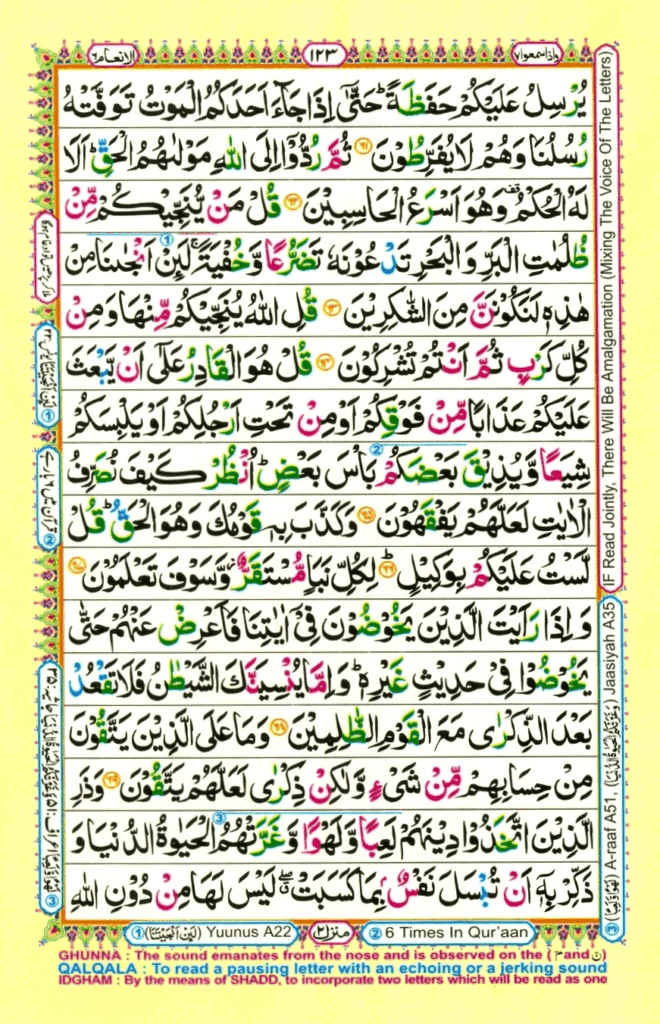 الانعام ٦
١٢٣
واذاسمعوا ٧
یُرْسِلُ عَلَیْكُمْ حَفَظَةً ؕ حَتّٰۤی اِذَا جَآءَ اَحَدَكُمُ الْمَوْتُ تَوَفَّتْهُ
رُسُلُنَا وَهُمْ لَا یُفَرِّطُوْنَ ﴿۶۱﴾ ثُمَّ رُدُّوْۤا اِلَی اللهِ مَوْلٰىهُمُ الْحَقِّ ؕ اَلَا
لَهُ الْحُكْمُ ۫ وَهُوَ اَسْرَعُ الْحَاسِبِیْنَ ﴿۶۲﴾ قُلْ مَنْ یُّنَجِّیْكُمْ مِّنْ
ظُلُمٰتِ الْبَرِّ وَالْبَحْرِ تَدْعُوْنَهٗ تَضَرُّعًا وَّخُفْیَةً ۚ لَىِٕنْ اَنْجٰىنَا مِنْ
هٰذِهٖ لَنَكُوْنَنَّ مِنَ الشّٰكِرِیْنَ ﴿۶۳﴾ قُلِ اللهُ یُنَجِّیْكُمْ مِّنْهَا وَمِنْ
كُلِّ كَرْبٍ ثُمَّ اَنْتُمْ تُشْرِكُوْنَ ﴿۶۴﴾ قُلْ هُوَ الْقَادِرُ عَلٰۤی اَنْ یَّبْعَثَ
عَلَیْكُمْ عَذَابًا مِّنْ فَوْقِكُمْ اَوْ مِنْ تَحْتِ اَرْجُلِكُمْ اَوْ یَلْبِسَكُمْ
شِیَعًا وَّیُذِیْقَ بَعْضَكُمْ بَاْسَ بَعْضٍ ؕ اُنْظُرْ كَیْفَ نُصَرِّفُ
الْاٰیٰتِ لَعَلَّهُمْ یَفْقَهُوْنَ ﴿۶۵﴾ وَكَذَّبَ بِهٖ قَوْمُكَ وَهُوَ الْحَقُّ ؕ قُلْ
لَّسْتُ عَلَیْكُمْ بِوَكِیْلٍ ﴿۶۶﴾ لِكُلِّ نَبَاٍ مُّسْتَقَرٌّ ؗ وَّسَوْفَ تَعْلَمُوْنَ ﴿۶۷﴾
وَاِذَا رَاَیْتَ الَّذِیْنَ یَخُوْضُوْنَ فِیْۤ اٰیٰتِنَا فَاَعْرِضْ عَنْهُمْ حَتّٰی
یَخُوْضُوْا فِیْ حَدِیْثٍ غَیْرِهٖ ؕ وَاِمَّا یُنْسِیَنَّكَ الشَّیْطٰنُ فَلَا تَقْعُدْ
بَعْدَ الذِّكْرٰی مَعَ الْقَوْمِ الظّٰلِمِیْنَ ﴿۶۸﴾ وَمَا عَلَی الَّذِیْنَ یَتَّقُوْنَ
مِنْ حِسَابِهِمْ مِّنْ شَیْءٍ وَّلٰكِنْ ذِكْرٰی لَعَلَّهُمْ یَتَّقُوْنَ ﴿۶۹﴾ وَذَرِ
الَّذِیْنَ اتَّخَذُوْا دِیْنَهُمْ لَعِبًا وَّلَهْوًا وَّغَرَّتْهُمُ الْحَیٰوةُ الدُّنْیَا وَ
ذَكِّرْ بِهٖۤ اَنْ تُبْسَلَ نَفْسٌۢ بِمَا كَسَبَتْ ۖۗ لَیْسَ لَهَا مِنْ دُوْنِ اللهِ
IF Read Jointly, There Will Be Amalgamation (Mixing The Voice Of The Letters)
③ (لَهْوًا وَّلَعِبًا) A-raaf A51, (وَغَرَّتْكُمُ الْحَیٰوةُ الدُّنْیَا) Jaasiyah A35
① (لَىِٕنْ اَنْجَیْتَنَا) Yuunus A22
منزل ٢
② 6 Times In Qur'aan
GHUNNA : The sound emanates from the nose and is observed on the ( م and ن)
QALQALA : To read a pausing letter with an echoing or a jerking sound
IDGHAM : By the means of SHADD, to incorporate two letters which will be read as one